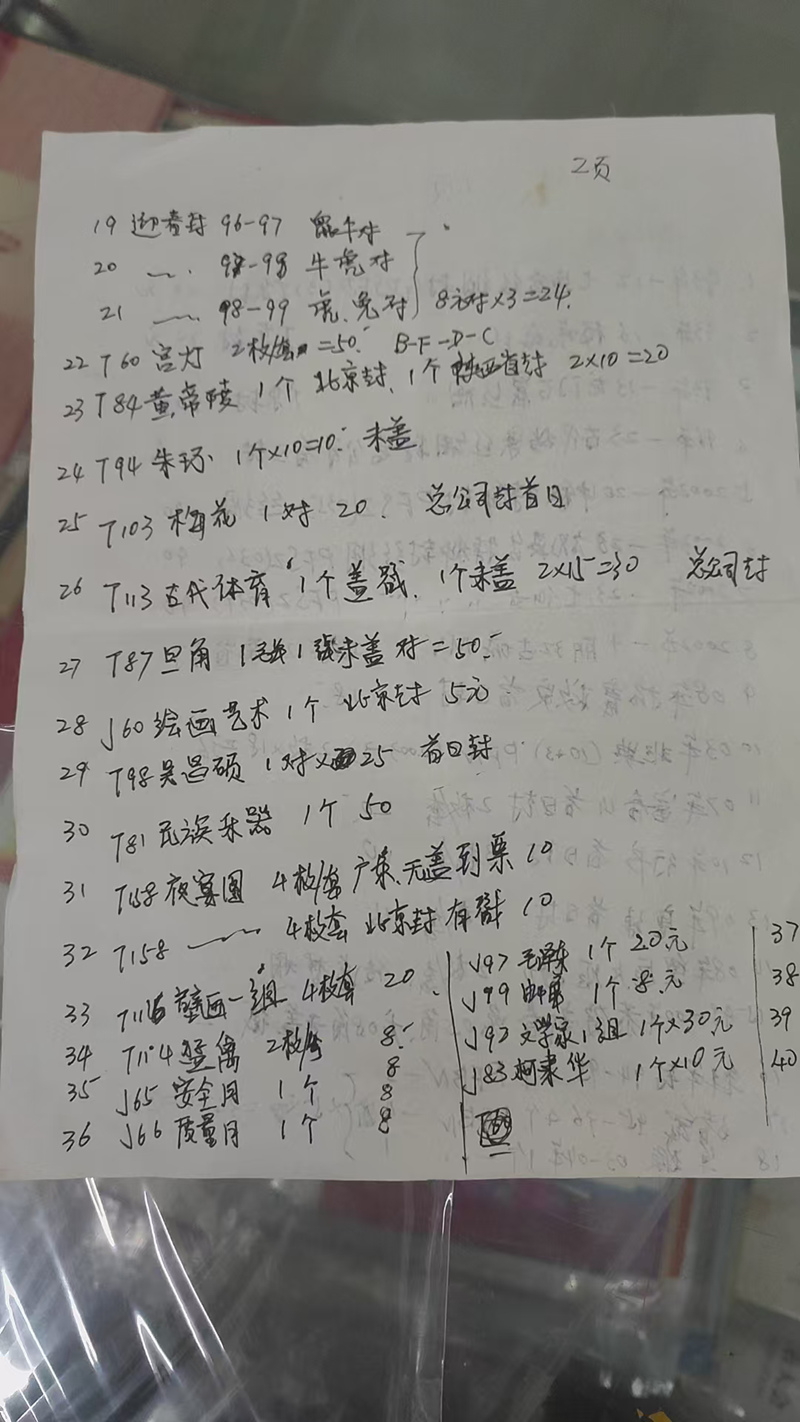 2页
19 迎春封 96-97 鼠牛对
20 〃 98-98 牛虎对
21 〃 98-99 虎、兔对 8元对×3=24.
22 T60 宫灯 2枚/套 =50. B-F-D-C
23 T84 黄帝陵 1个 北京封、1个 陕西首封 2×10=20
24 T94 朱环 1个×10=10. 未盖
25 T103 梅花 1对 20. 总公司封首日
26 T113 古代体育 1个盖戳. 1个未盖 2×15=30 总公司封
27 T87 旦角 1张未盖 对=50.
28 J60 绘画艺术 1个 北京封 5元
29 T98 吴昌硕 1对 25 首日封.
30 T81 民族乐器 1个 50
31 T158 夜宴图 4枚/套 广东、无盖到票 10
32 T158 〃 4枚套 北京封 有戳 10
33 T116 壁画一组 4枚套 20
34 T114 2枚/ 8.
35 J65 安全月 1个 8
36 J66 质量月 1个 8
J97 1个 20元 37
J99 1个 8元 38
J92 文学家1组 1个×30元 39
J83 柯棣华 1个×10元 40